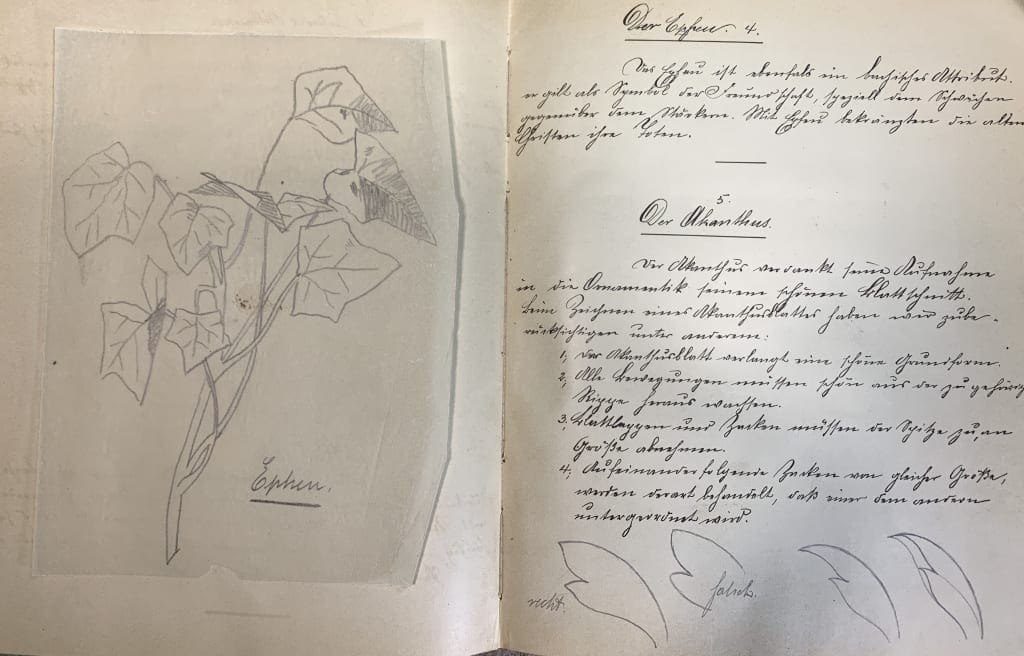 Epheu.
Der Epheu. 4.
Das Epheu ist ebenfalls ein bachisches Attribut.
er gilt als Symbol der Freundschaft, speziell dem Schwachen
gegenüber dem Stärkern. Mit Epheu bekränzten die alten
Christen ihre Toten.
5.
Der Akanthus.
Der Akanthus verdankt seine Aufnahme
in die Ornamentik seinem schönen Blattschnitt.
Beim Zeichnen eines Akanthusblattes haben wir zube-
rücksichtigen unter anderem:
1, Das Akanthusblatt verlangt eine schöne Grundform.
2, Alle Bewegungen müssen schön aus der zu gehörig
Rippe heraus wachsen.
3. Blattlappen und Zacken müssen der Spitze zu, an
Größe abnehmen.
4, Aufeinanderfolgende Zacken von gleicher Größe,
werden derart behandelt, daß einer dem andern
untergeordnet wird.
recht. falsch.